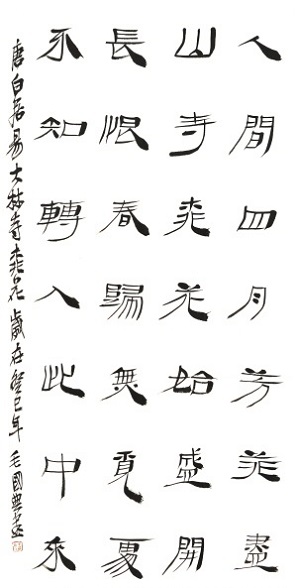 人間四月芳菲盡
山寺桃花始盛開
長恨春歸無覓處
不知轉入此中來
唐白居易大林寺桃花歲在癸巳年毛國典書